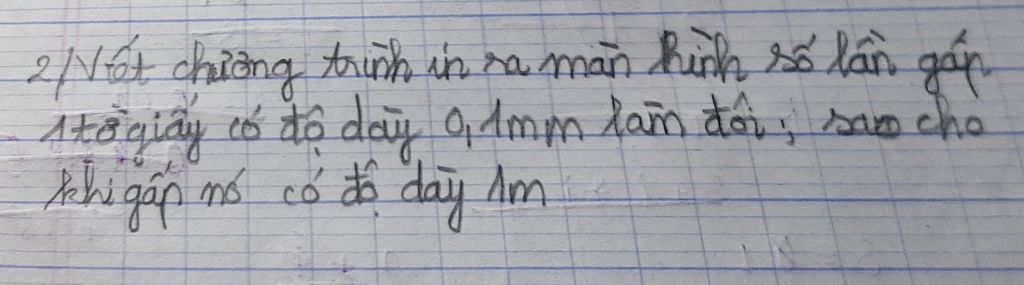 2) Viết chương trình in ra màn hình số lần gấp
1 tờ giấy có độ dày 0,1mm làm đôi; sao cho
khi gấp nó có độ dày 1m